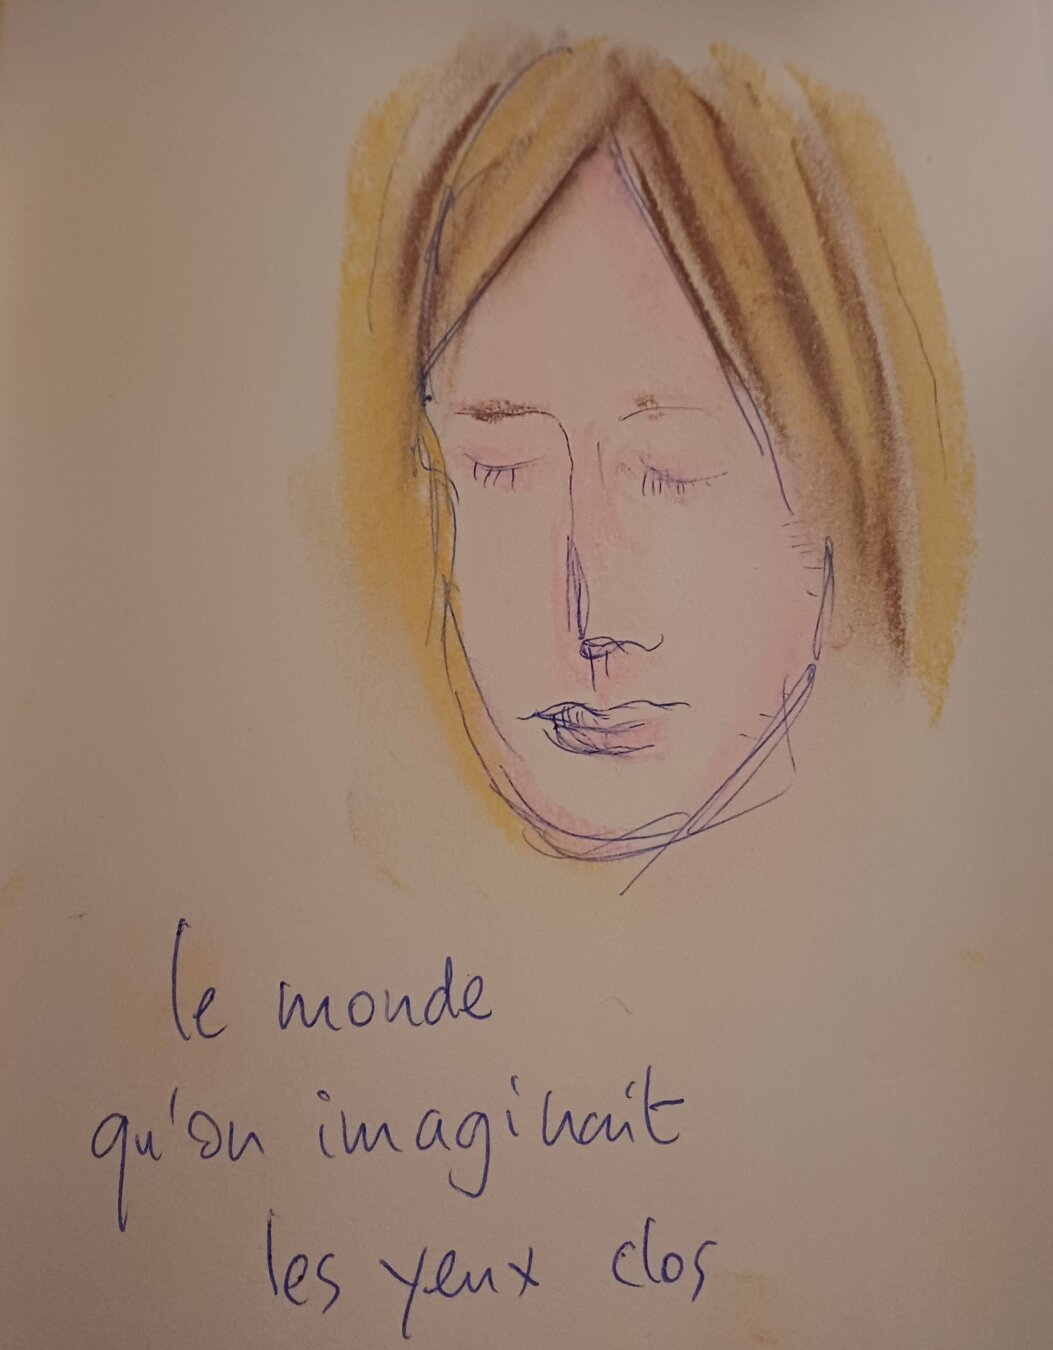 le monde
qu'on imaginait
les yeux clos